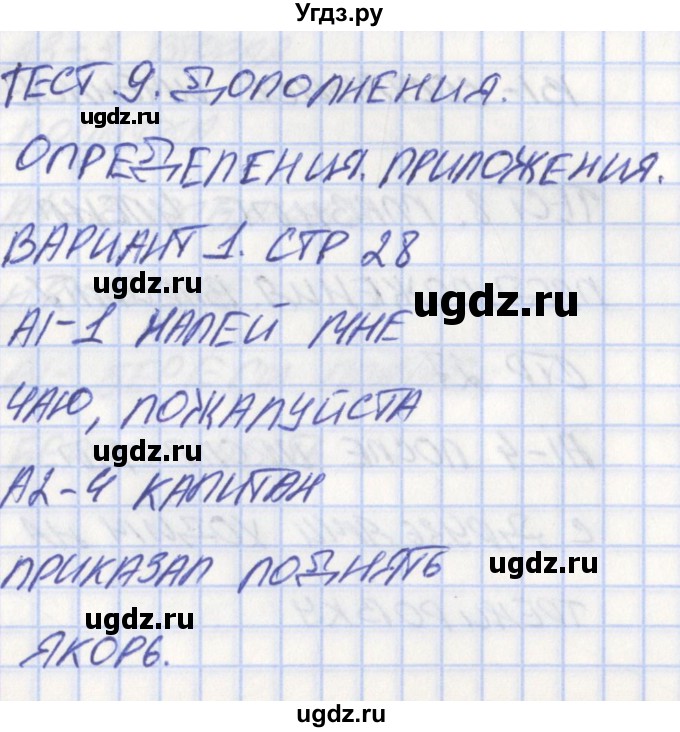 Угдз.ру
ТЕСТ 9. ДОПОЛНЕНИЯ.
ugdz.ru
ОПРЕДЕЛЕНИЯ. ПРИЛОЖЕНИЯ.
ВАРИАНТ 1. СТР 28
ugdz.ru
ugdz.ru
А1-1 НАЛЕЙ МНЕ
ЧАЮ, ПОЖАЛУЙСТА
ugdz.ru
А2-4 КАПИТАН
ПРИКАЗАЛ ПОДНЯТЬ
ugdz.ru
ugdz.ru
ЯКОРЬ.
ugdz.ru